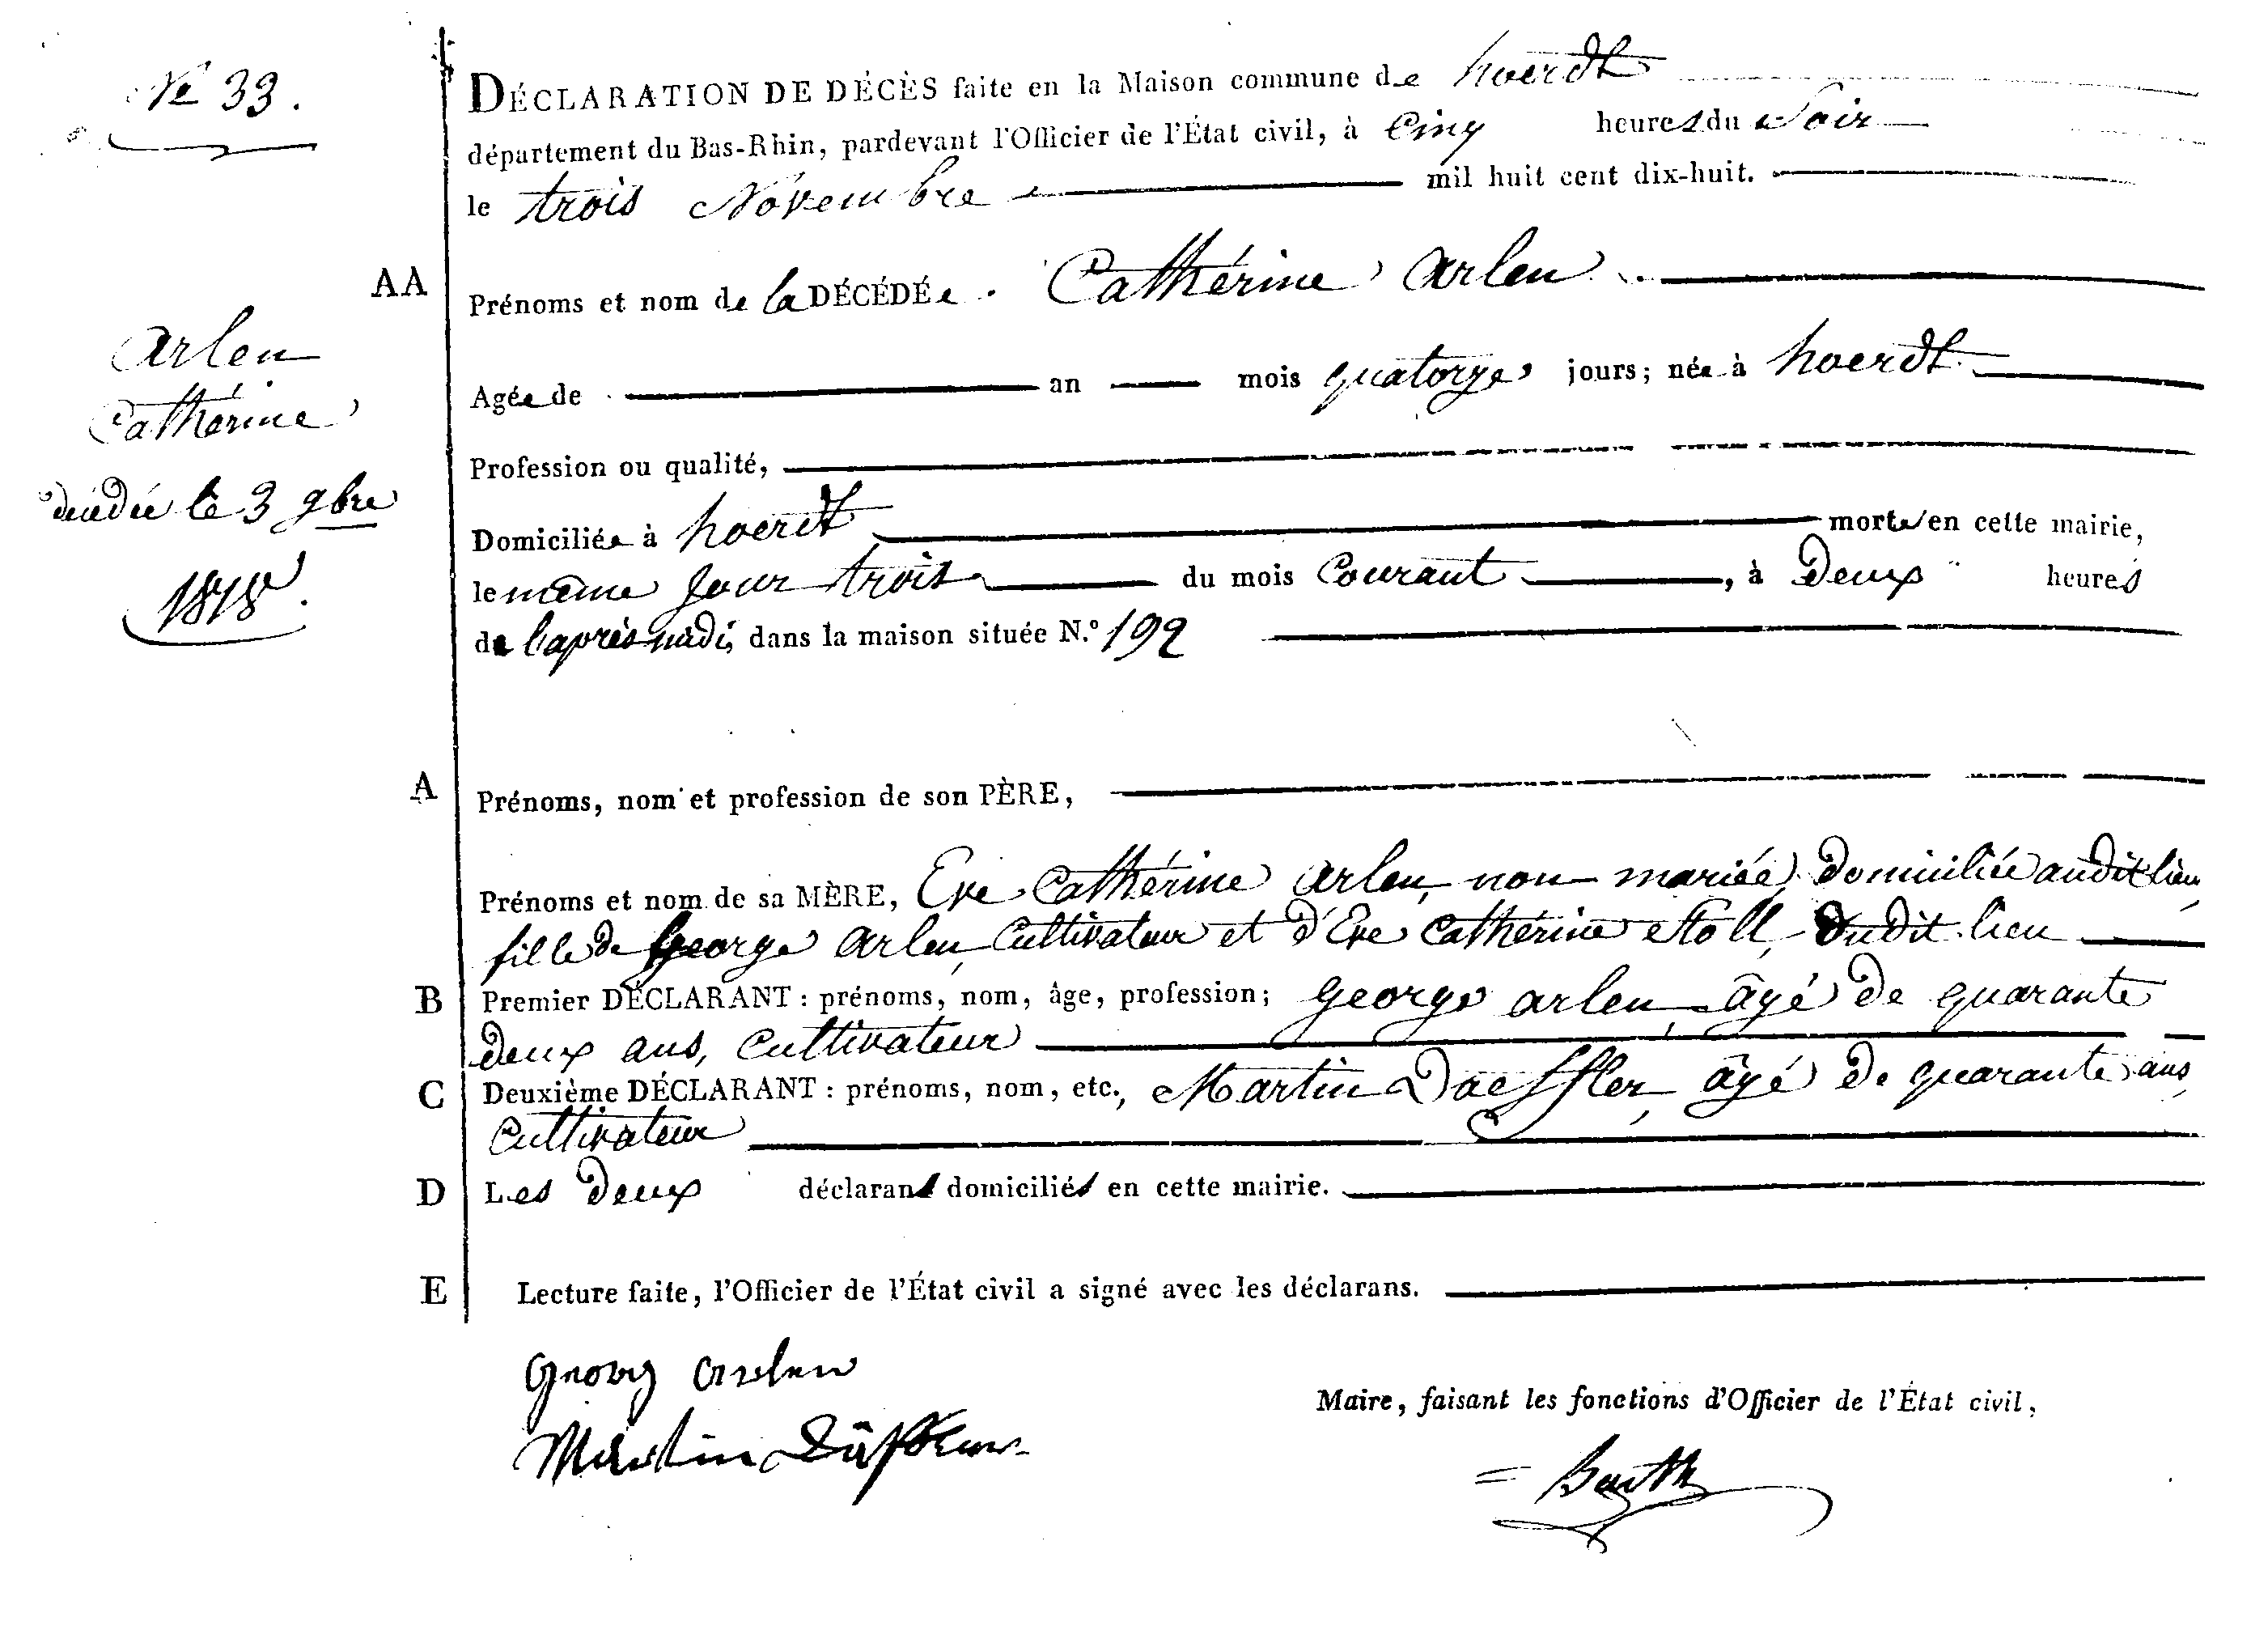 N° 33.
DÉCLARATION DE DÉCÈS faite en la Maison commune de hoerdt
département du Bas-Rhin, pardevant l'Officier de l'État civil, à Cinq heures du Soir
le trois Novembre mil huit cent dix-huit.
AA
Prénoms et nom de la DÉCÉDÉe. Cathérine Arlen
Arlen
Cathérine
décédée le 3 9bre
1818.
Agée de an mois quatorze jours; née à hoerdt
Profession ou qualité,
Domiciliée à hoerdt morte en cette mairie,
le même jour trois du mois Courant, à Deux heures
de l'après midi, dans la maison située N.° 192
A
Prénoms, nom et profession de son PÈRE,
Prénoms et nom de sa MÈRE, Eve Cathérine Arlen, non mariée, domiciliée audit lieu,
fille de George Arlen, Cultivateur et d'Eve Cathérine Stoll, dudit lieu
B
Premier DÉCLARANT : prénoms, nom, âge, profession; George Arlen, âgé de quarante
deux ans, Cultivateur
C
Deuxième DÉCLARANT : prénoms, nom, etc., Martin Daeffler, âgé de quarante ans,
Cultivateur
D
Les Deux déclarans domiciliés en cette mairie.
E
Lecture faite, l'Officier de l'État civil a signé avec les déclarans.
Georg Arlen
Martin
Maire, faisant les fonctions d'Officier de l'État civil,
Barth